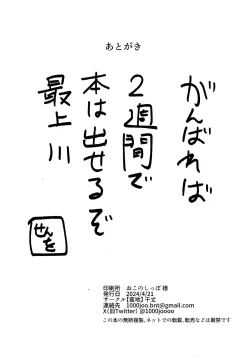 あとがき
がんばれば
2週間で
本は出せるぞ
最上川
せんを
印刷所 おこのしっぽ 様
発行日 2024/4/21
サークル【富地】千丈
連絡先 1000joo.bnt@gmail.com
X（旧Twitter）@1000joooo
この本の無断複製、ネットでの掲載、転売などは厳禁です